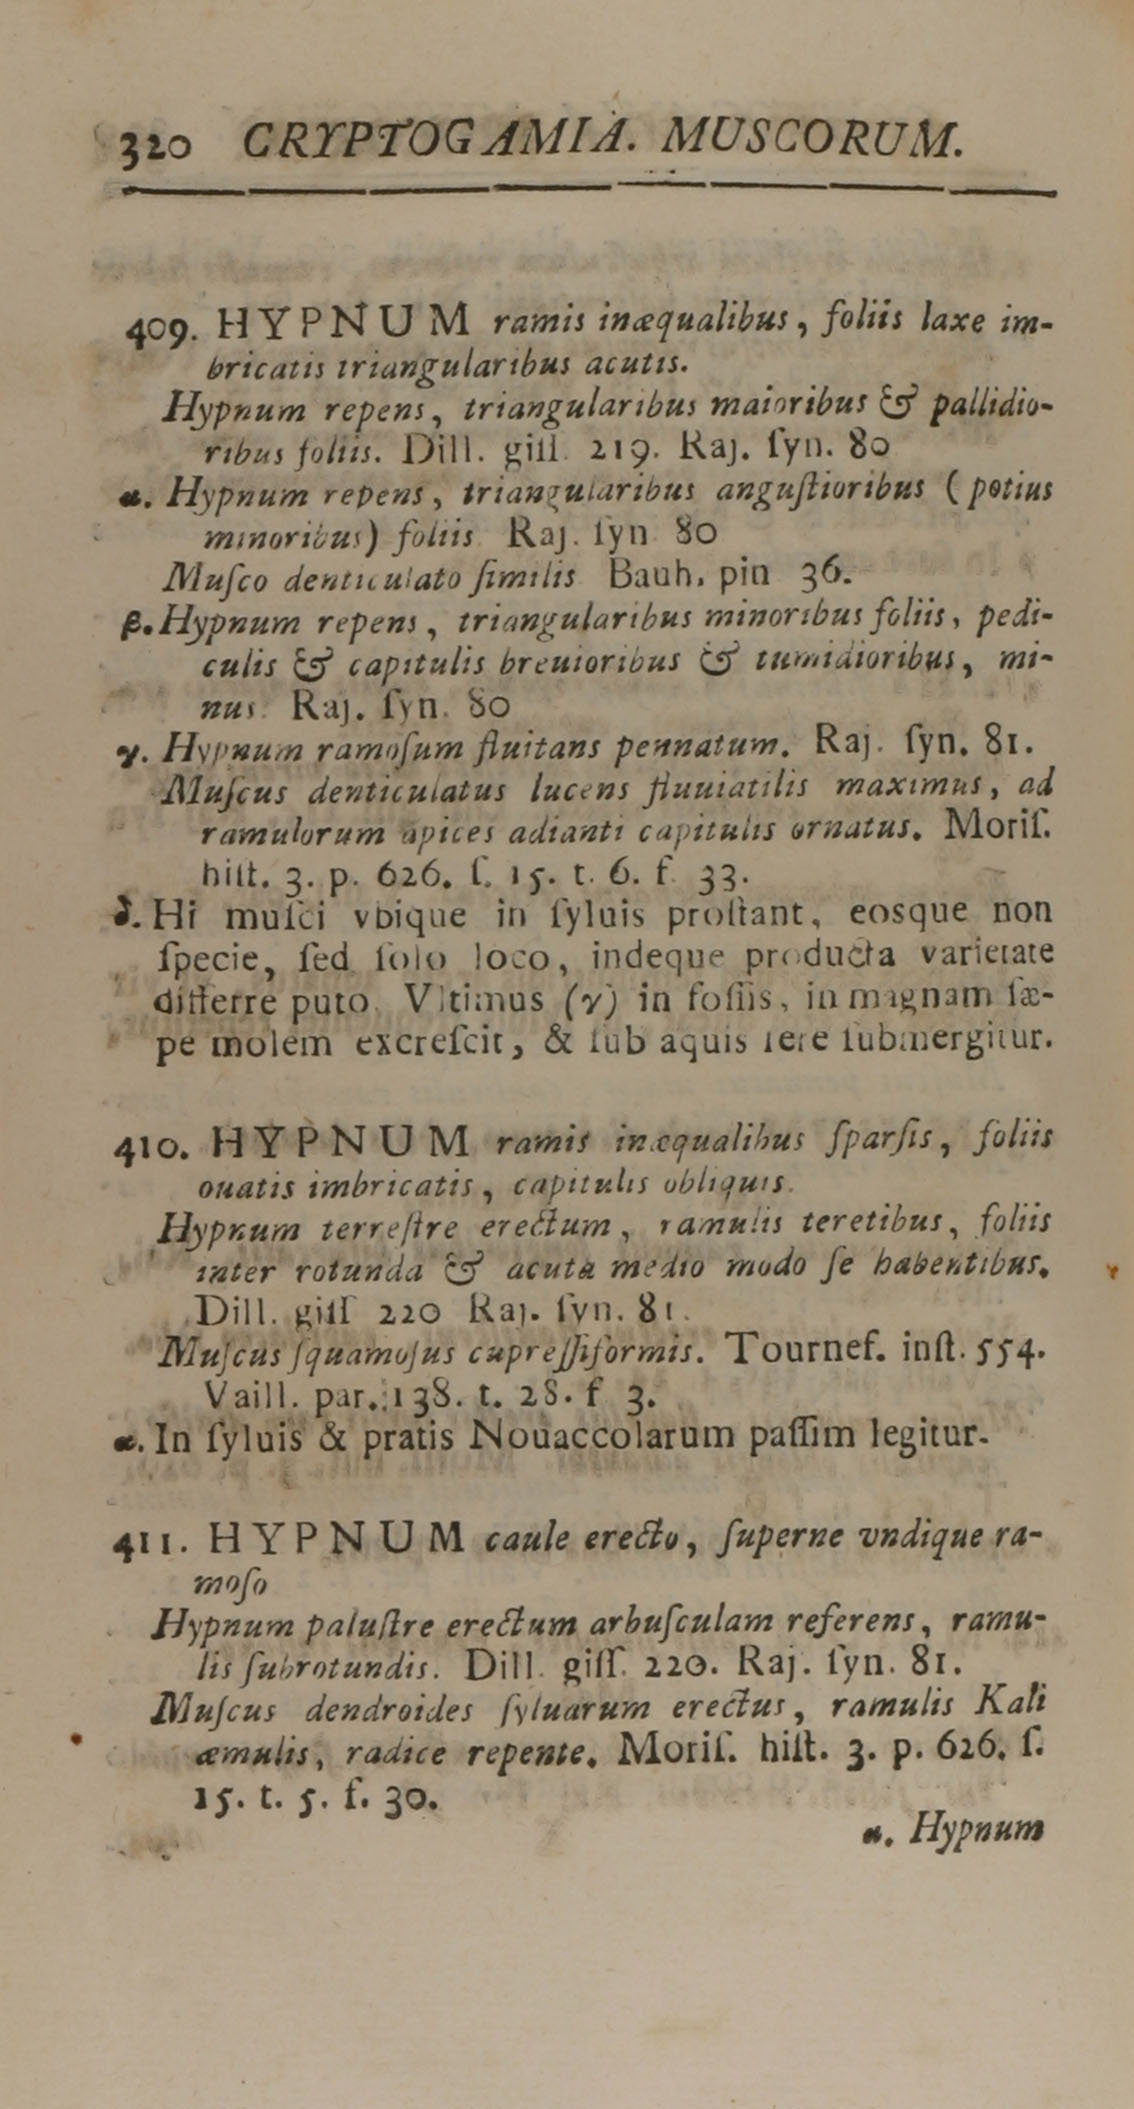 320 CRYPTOGAMIA. MUSCORUM.
409. HYPNUM ramis inæqualibus, foliis laxe im-
bricatis triangularibus acutis.
Hypnum repens, triangularibus maioribus & pallidio-
ribus foliis. Dill. giſſ. 219. Raj. ſyn. 80
α. Hypnum repens, triangularibus anguſtioribus (potius
minoribus) foliis Raj. ſyn 80
Muſco denticulato ſimilis Bauh. pin 36.
β. Hypnum repens, triangularibus minoribus foliis, pedi-
culis & capitulis breuioribus & tumidioribus, mi-
nus. Raj. ſyn. 80
γ. Hypnum ramoſum fluitans pennatum. Raj. ſyn. 81.
Muſcus denticulatus lucens fluuiatilis maximus, ad
ramulorum apices adianti capitulis ornatus. Moriſ.
hiſt. 3. p. 626. ſ. 15. t. 6. f. 33.
δ. Hi muſci vbique in ſyluis proſtant, eosque non
ſpecie, ſed ſolo loco, indeque producta varietate
differre puto. Vltimus (γ) in foſſis, in magnam ſæ-
pe molem excreſcit, & ſub aquis fere ſubmergitur.
410. HYPNUM ramis inæqualibus ſparſis, foliis
ouatis imbricatis, capitulis obliquis.
Hypnum terreſtre erectum, ramulis teretibus, foliis
inter rotunda & acuta medio modo ſe habentibus.
Dill. giſſ 220 Raj. ſyn. 81.
Muſcus ſquamoſus cupreſſiformis. Tournef. inſt. 554.
Vaill. par. 138. t. 28. f 3.
α. In ſyluis & pratis Nouaccolarum paſſim legitur.
411. HYPNUM caule erecto, ſuperne vndique ra-
moſo
Hypnum paluſtre erectum arbuſculam referens, ramu-
lis ſubrotundis. Dill. giſſ. 220. Raj. ſyn. 81.
Muſcus dendroides ſyluarum erectus, ramulis Kali
æmulis, radice repente. Moriſ. hiſt. 3. p. 626. ſ.
15. t. 5. f. 30.
α. Hypnum